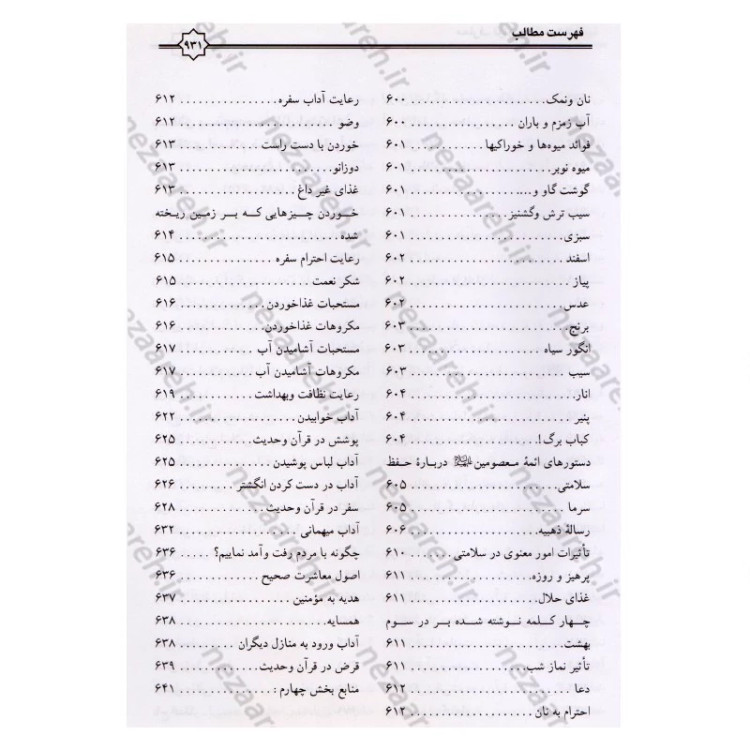 فهرست مطالب
۹۳۱
نان ونمک ........ ۶۰۰
آب زمزم و باران ........ ۶۰۰
فوائد میوه‌ها و خوراکیها ........ ۶۰۱
میوه نوبر ........ ۶۰۱
گوشت گاو و ........ ۶۰۱
سیب ترش وگشنیز ........ ۶۰۱
سبزی ........ ۶۰۱
اسفند ........ ۶۰۲
پیاز ........ ۶۰۲
عدس ........ ۶۰۲
برنج ........ ۶۰۳
انگور سیاه ........ ۶۰۳
سیب ........ ۶۰۳
انار ........ ۶۰۴
پنیر ........ ۶۰۴
کباب برگ! ........ ۶۰۴
دستورهای ائمهٔ معصومین دربارهٔ حفظ
سلامتی ........ ۶۰۵
سرما ........ ۶۰۵
رسالهٔ ذهبیه ........ ۶۰۶
تأثیرات امور معنوی در سلامتی ........ ۶۱۰
پرهیز و روزه ........ ۶۱۱
غذای حلال ........ ۶۱۱
چهار کلمه نوشته شده بر در سوم
بهشت ........ ۶۱۱
تأثیر نماز شب ........ ۶۱۱
دعا ........ ۶۱۲
احترام به نان ........ ۶۱۲
رعایت آداب سفره ........ ۶۱۲
وضو ........ ۶۱۲
خوردن با دست راست ........ ۶۱۳
دوزانو ........ ۶۱۳
غذای غیر داغ ........ ۶۱۳
خوردن چیزهایی که بر زمین ریخته
شده ........ ۶۱۴
رعایت احترام سفره ........ ۶۱۵
شکر نعمت ........ ۶۱۵
مستحبات غذاخوردن ........ ۶۱۶
مکروهات غذاخوردن ........ ۶۱۶
مستحبات آشامیدن آب ........ ۶۱۷
مکروهات آشامیدن آب ........ ۶۱۷
رعایت نظافت وبهداشت ........ ۶۱۹
آداب خوابیدن ........ ۶۲۲
پوشش در قرآن وحدیث ........ ۶۲۵
آداب لباس پوشیدن ........ ۶۲۵
آداب در دست کردن انگشتر ........ ۶۲۶
سفر در قرآن وحدیث ........ ۶۲۸
آداب میهمانی ........ ۶۳۲
چگونه با مردم رفت وآمد نماییم؟ ........ ۶۳۶
اصول معاشرت صحیح ........ ۶۳۶
هدیه به مؤمنین ........ ۶۳۷
همسایه ........ ۶۳۸
آداب ورود به منازل دیگران ........ ۶۳۸
قرض در قرآن وحدیث ........ ۶۳۹
منابع بخش چهارم: ........ ۶۴۱
nezaareh.ir